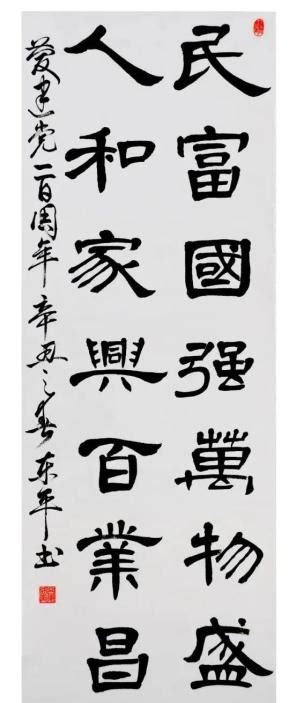 民富國强萬物盛
人和家興百業昌
慶建党一百周年辛丑之春东平书